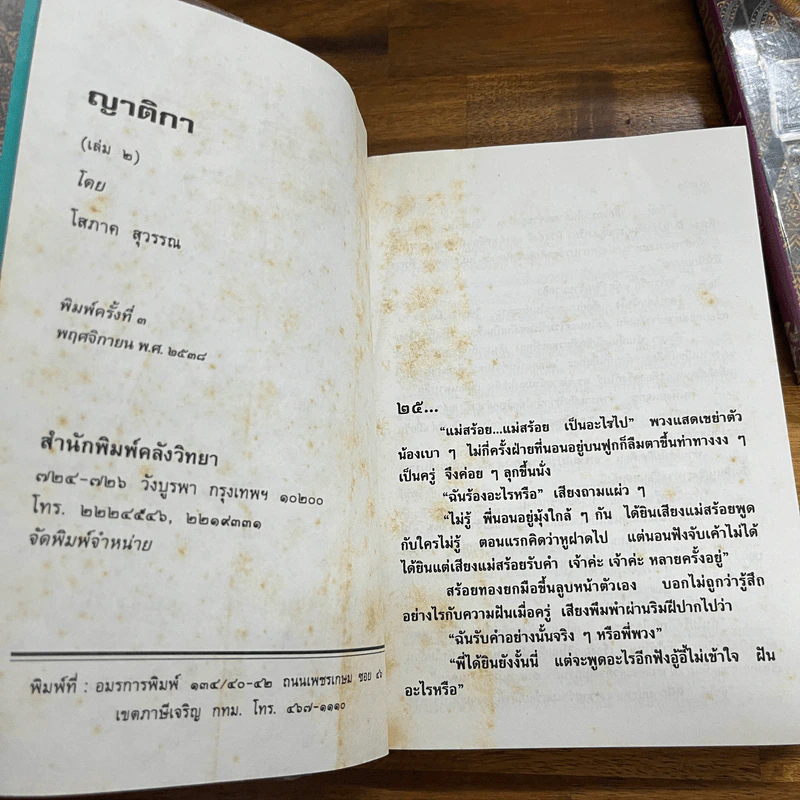 ญาติกา
(เล่ม ๒)
โดย
โสภาค สุวรรณ
พิมพ์ครั้งที่ ๓
พฤศจิกายน พ.ศ. ๒๕๓๘
สำนักพิมพ์คลังวิทยา
๗๒๔-๗๒๖ วังบูรพา กรุงเทพฯ ๑๐๒๐๐
โทร. ๒๒๒๔๕๔๖, ๒๒๑๙๓๓๑
จัดพิมพ์จำหน่าย
พิมพ์ที่ : อมรการพิมพ์ ๑๓๔/๔๐-๔๒ ถนนเพชรเกษม ซอย ๔๖
เขตภาษีเจริญ กทม. โทร. ๔๖๗-๑๑๑๐
๒๕...
“แม่สร้อย...แม่สร้อย เป็นอะไรไป” พวงแสดเขย่าตัว
น้องเบา ๆ ไม่กี่ครั้งฝ่ายที่นอนอยู่บนฟูกก็ลืมตาขึ้นท่าทางงง ๆ
เป็นครู่ จึงค่อย ๆ ลุกขึ้นนั่ง
“ฉันร้องอะไรหรือ” เสียงถามแผ่ว ๆ
“ไม่รู้ พี่นอนอยู่มุ้งใกล้ ๆ กัน ได้ยินเสียงแม่สร้อยพูด
กับใครไม่รู้ ตอนแรกคิดว่าหูฝาดไป แต่นอนฟังจับเค้าไม่ได้
ได้ยินแต่เสียงแม่สร้อยรับคำ เจ้าค่ะ เจ้าค่ะ หลายครั้งอยู่”
สร้อยทองยกมือขึ้นลูบหน้าตัวเอง บอกไม่ถูกว่ารู้สึก
อย่างไรกับความฝันเมื่อครู่ เสียงพึมพำผ่านริมฝีปากไปว่า
“ฉันรับคำอย่างนั้นจริง ๆ หรือพี่พวง”
“พี่ได้ยินยังงั้นนี่ แต่จะพูดอะไรอีกฟังอู้อี้ไม่เข้าใจ ฝัน
อะไรหรือ”